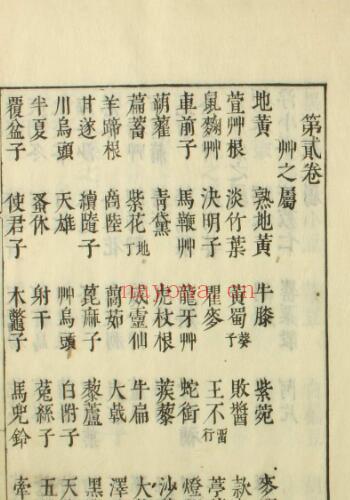 第貳卷
艸之屬
地黃 熟地黃 牛膝 紫菀 麥
萱艸根 淡竹葉 黃蜀葵 敗醬 款
鼠麴艸 決明子 瞿麥 王不留行 葶
車前子 馬鞭艸 龍牙艸 蛇銜 燈
蒴藋 青黛 虎杖根 蒺藜 沙
萹蓄 紫花地丁 威靈仙 牛扁 大
羊蹄根 商陸 藺茹 大戟 澤
甘遂 續隨子 萆麻子 藜蘆 黑
川烏頭 天雄 艸烏頭 白附子 天
半夏 蚤休 射干 菟絲子 五
覆盆子 使君子 木鼈子 馬兜鈴 牽
nayona.cn